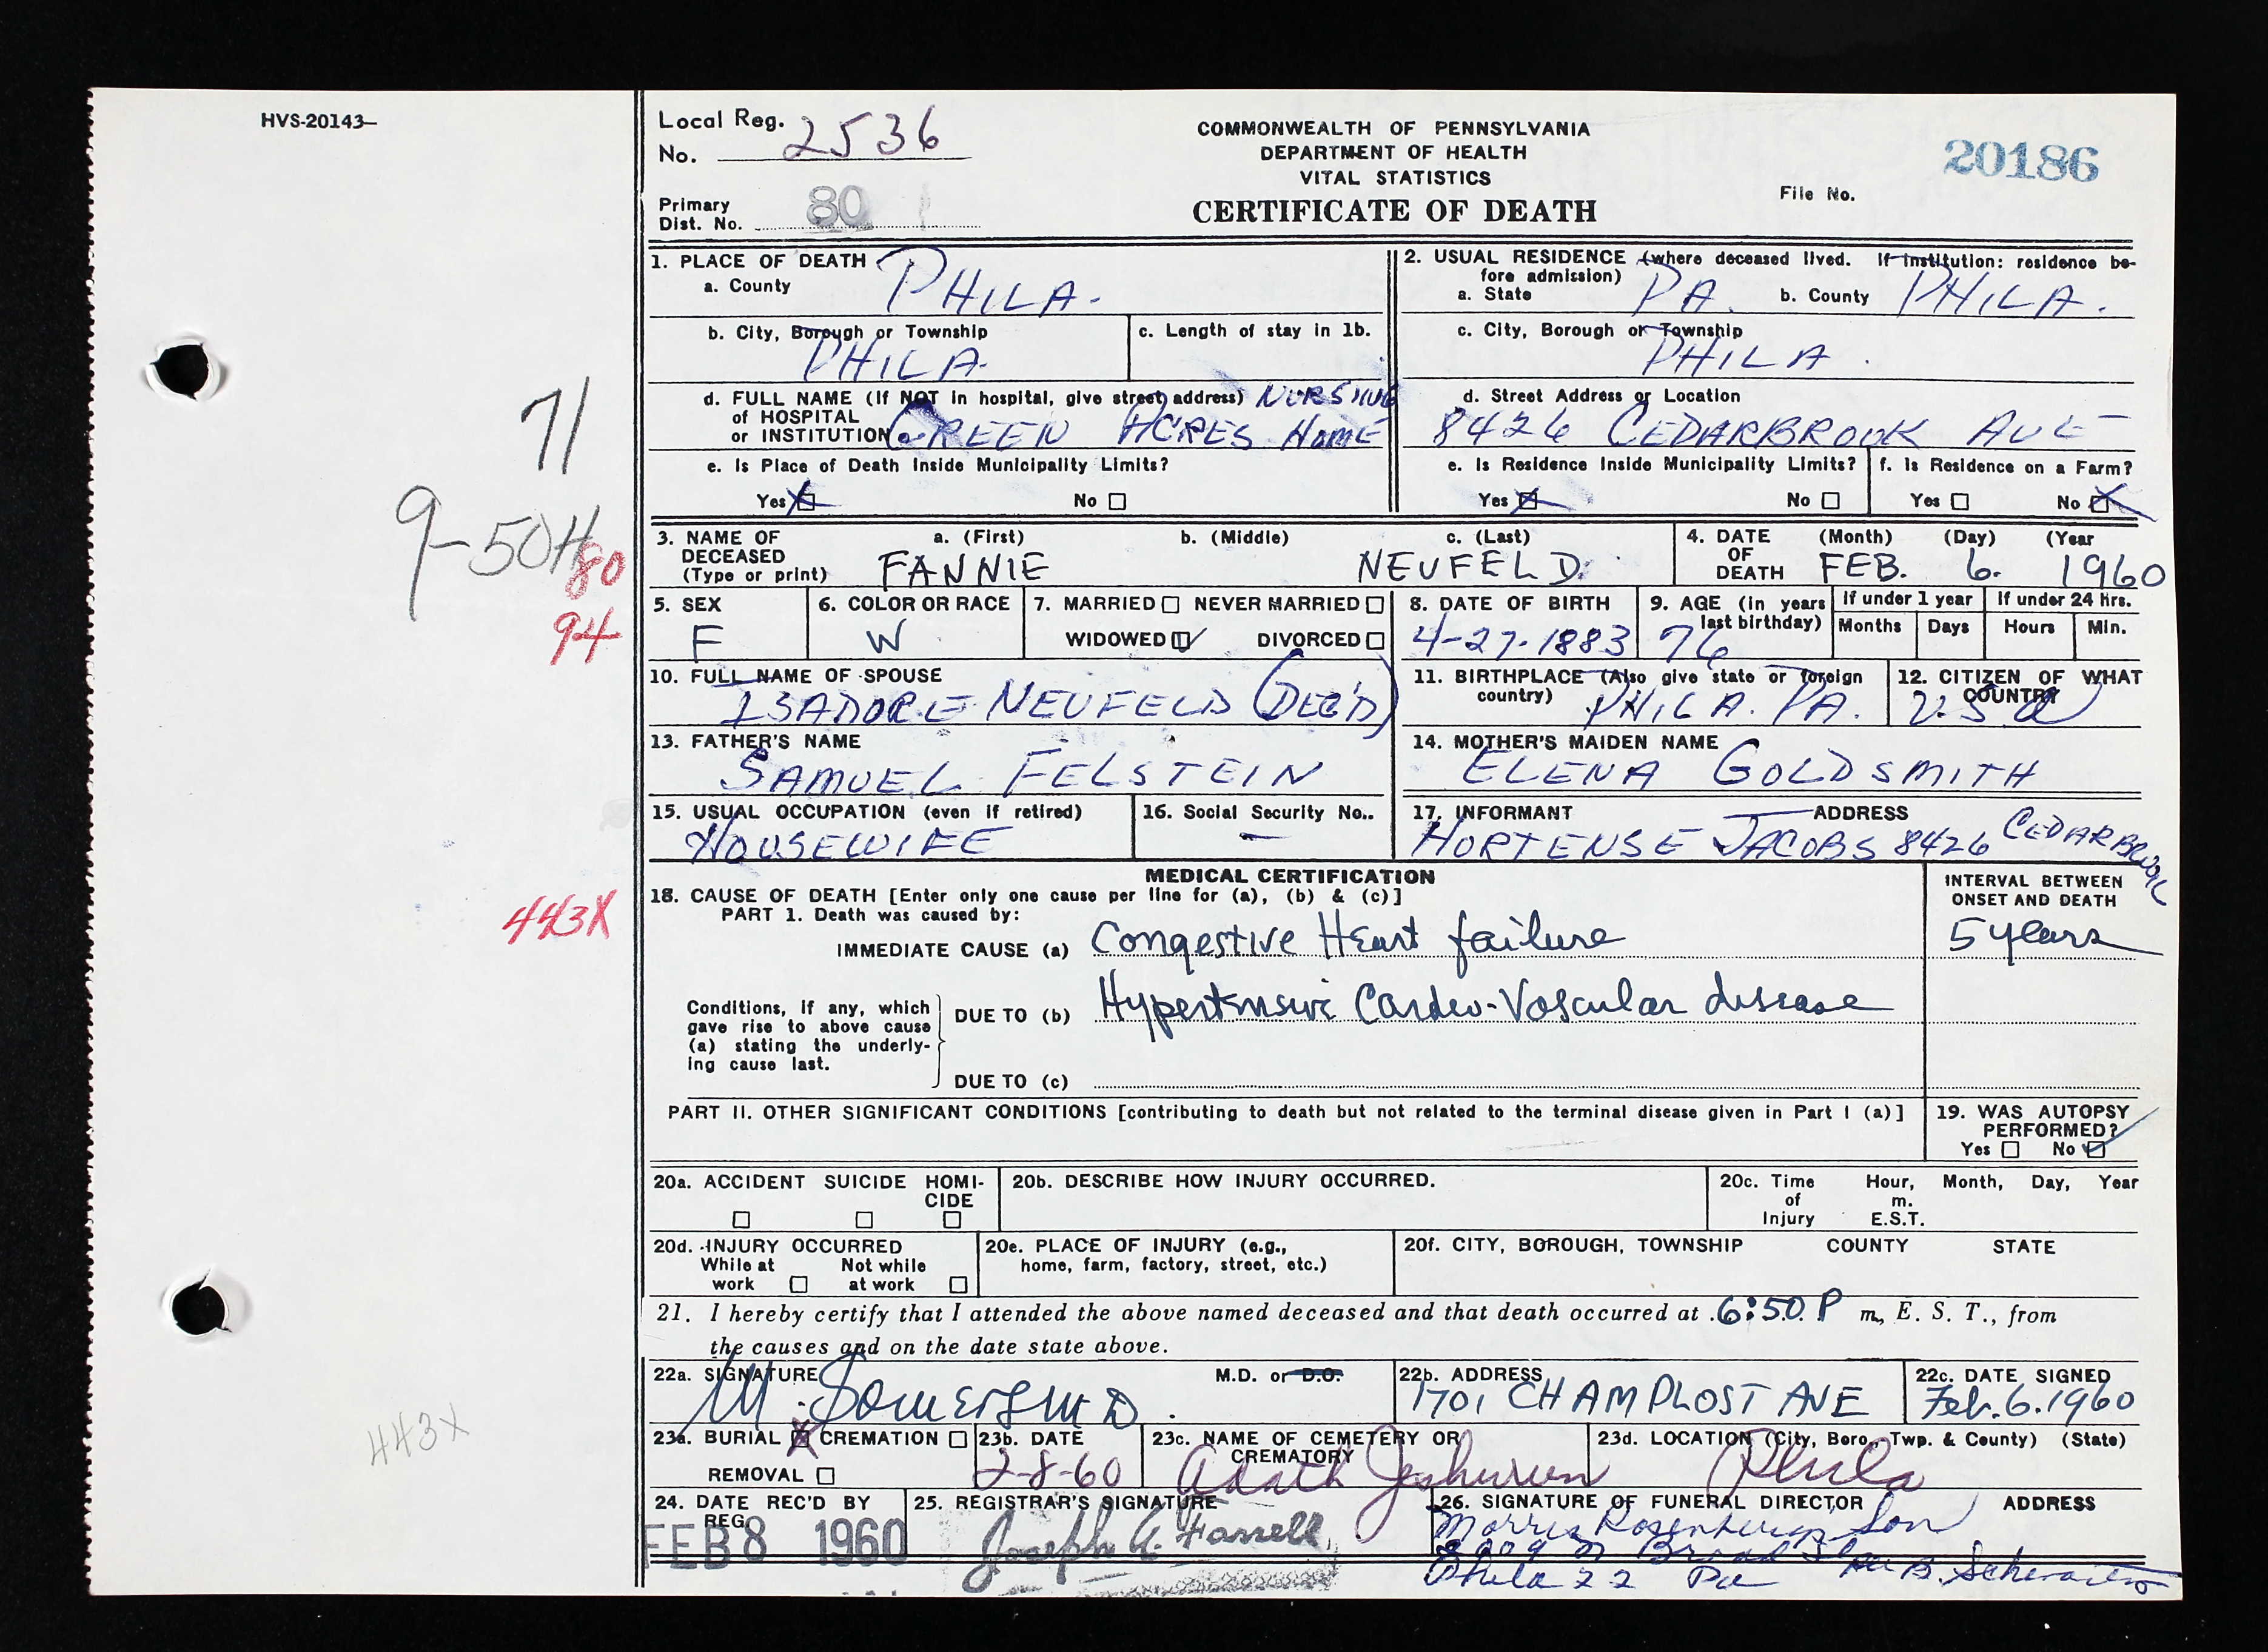 HVS-20143—
Local Reg. No. 2536
20186
COMMONWEALTH OF PENNSYLVANIA
DEPARTMENT OF HEALTH
VITAL STATISTICS
CERTIFICATE OF DEATH
File No.
Primary Dist. No. 80
1. PLACE OF DEATH
a. County PHILA.
2. USUAL RESIDENCE (where deceased lived. If institution: residence before admission)
a. State PA. b. County PHILA.
b. City, Borough or Township PHILA.
c. Length of stay in 1b.
c. City, Borough or Township PHILA.
d. FULL NAME (If NOT in hospital, give street address) of HOSPITAL or INSTITUTION GREEN ACRES NURSING HOME
d. Street Address or Location
8426 CEDARBROOK AVE
e. Is Place of Death Inside Municipality Limits?
Yes No
e. Is Residence Inside Municipality Limits?
Yes No
f. Is Residence on a Farm?
Yes No
71
9-50H
80
94
3. NAME OF DECEASED (Type or print) a. (First) b. (Middle) c. (Last)
FANNIE NEUFELD.
4. DATE OF DEATH (Month) (Day) (Year
FEB. 6. 1960
5. SEX F
6. COLOR OR RACE W
7. MARRIED NEVER MARRIED
WIDOWED DIVORCED
8. DATE OF BIRTH 4-27-1883
9. AGE (in years last birthday) 76
If under 1 year Months Days
If under 24 hrs. Hours Min.
10. FULL NAME OF SPOUSE
ISADORE NEUFELD (DEC'D)
11. BIRTHPLACE (Also give state or foreign country) PHILA. PA.
12. CITIZEN OF WHAT COUNTRY U.S.A
13. FATHER'S NAME
SAMUEL FELSTEIN
14. MOTHER'S MAIDEN NAME
ELENA GOLDSMITH
15. USUAL OCCUPATION (even if retired)
HOUSEWIFE
16. Social Security No..
—
17. INFORMANT ADDRESS
HORTENSE JACOBS 8426 CEDARBROOK
MEDICAL CERTIFICATION
18. CAUSE OF DEATH [Enter only one cause per line for (a), (b) & (c)]
PART 1. Death was caused by:
INTERVAL BETWEEN ONSET AND DEATH
443X
IMMEDIATE CAUSE (a) Congestive Heart failure 5 years
Conditions, if any, which gave rise to above cause (a) stating the underlying cause last.
DUE TO (b) Hypertensive Cardio-Vascular disease
DUE TO (c)
PART II. OTHER SIGNIFICANT CONDITIONS [contributing to death but not related to the terminal disease given in Part I (a)]
19. WAS AUTOPSY PERFORMED?
Yes No
20a. ACCIDENT SUICIDE HOMICIDE
20b. DESCRIBE HOW INJURY OCCURRED.
20c. Time of Injury Hour, m. E.S.T. Month, Day, Year
20d. INJURY OCCURRED
While at work Not while at work
20e. PLACE OF INJURY (e.g., home, farm, factory, street, etc.)
20f. CITY, BOROUGH, TOWNSHIP COUNTY STATE
21. I hereby certify that I attended the above named deceased and that death occurred at 6:50 P m., E. S. T., from
the causes and on the date state above.
22a. SIGNATURE M.D. or D.O.
M. Somers M D.
22b. ADDRESS
1701 CHAMPLOST AVE
22c. DATE SIGNED
Feb. 6. 1960
443X
23a. BURIAL CREMATION
REMOVAL
23b. DATE
2-8-60
23c. NAME OF CEMETERY OR CREMATORY
Adath Jeshurun
23d. LOCATION (City, Boro., Twp. & County) (State)
Phila
24. DATE REC'D BY REG.
FEB 8 1960
25. REGISTRAR'S SIGNATURE
Joseph A. Farrell
26. SIGNATURE OF FUNERAL DIRECTOR ADDRESS
Morris Rosenberg's Son
2009 N Broad St
Phila 22 Pa Per B.